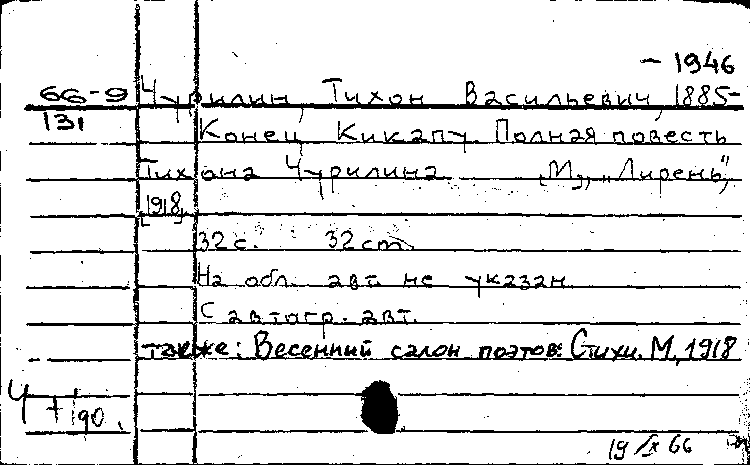 - 1946
66-9 Чурилин, Тихон Васильевич, 1885-
131 Конец Кикапу. Полная повесть
Тихона Чурилина. [М], „Лирень",
[1918]
32 с. 32 cm.
На обл. авт. не указан.
С автогр. авт.
также: Весенний салон поэтов: Стихи. М, 1918
Ч
19/IX 66